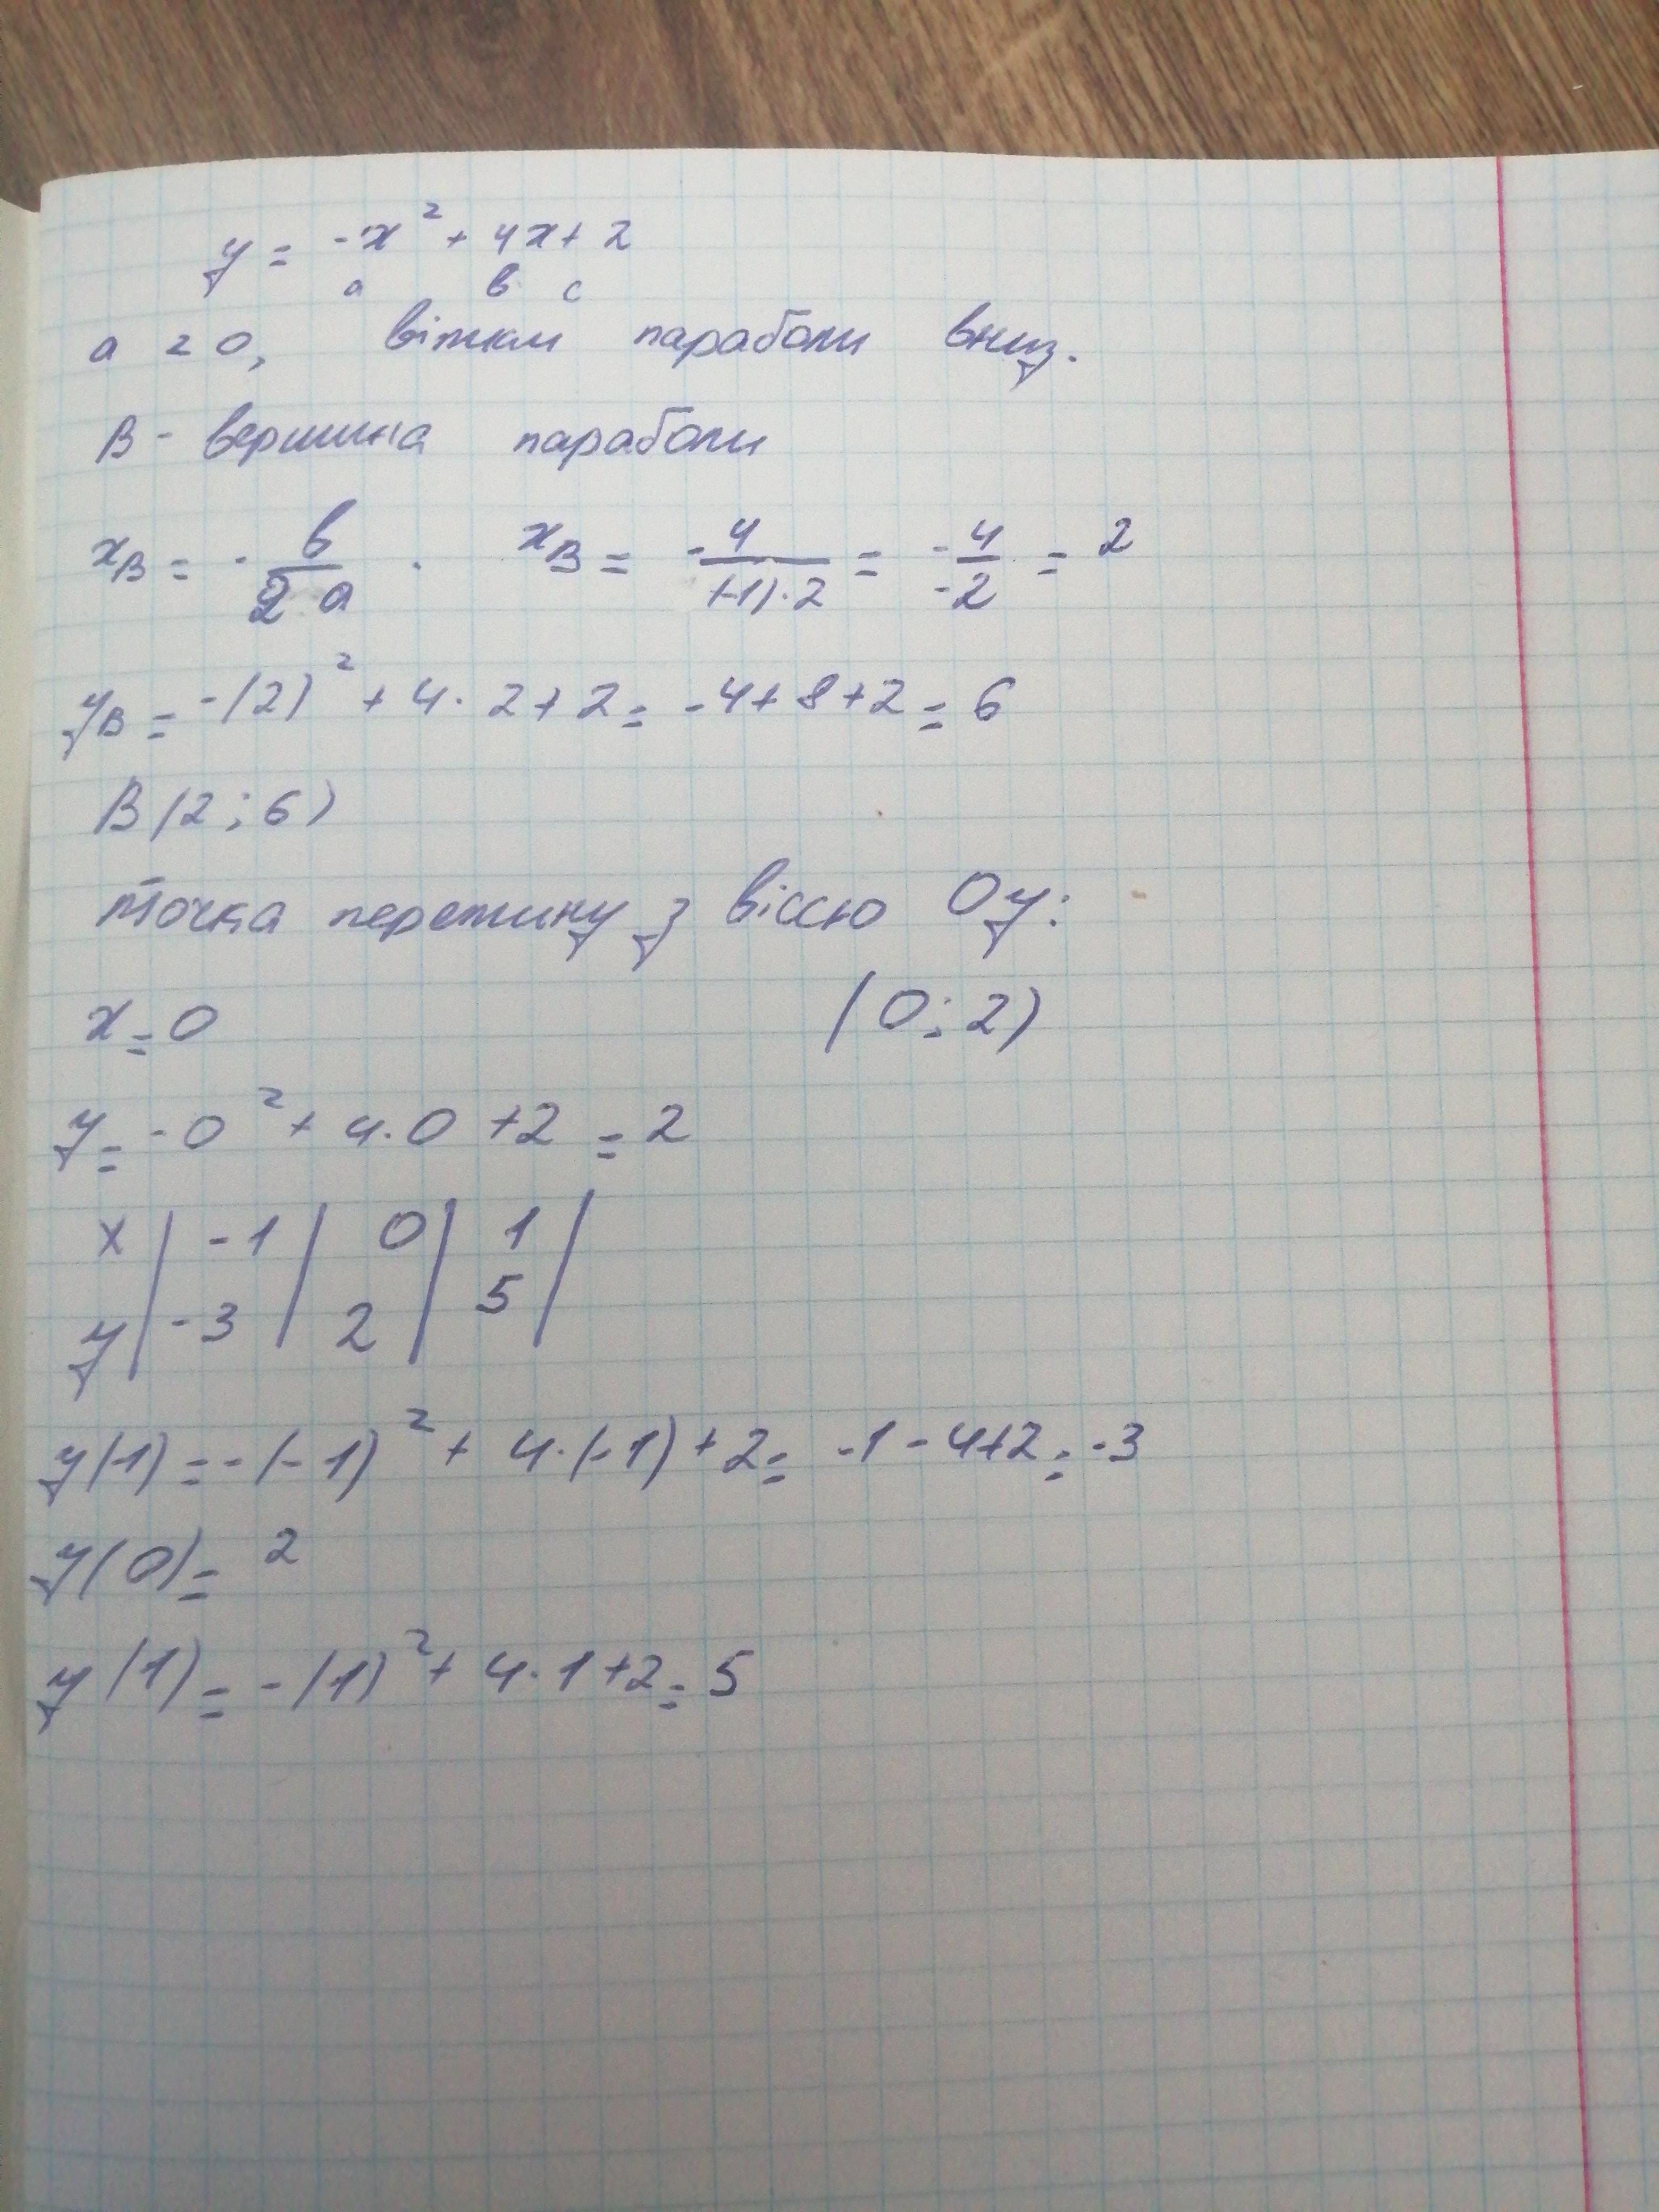 y = -x² + 4x + 2
a в c
a < 0, вітки параболи вниз.
B - вершина параболи
xB = - в/2a . xB = -4/(-1)·2 = -4/-2 = 2
yB = -(2)² + 4·2+2 = -4+8+2 = 6
B(2;6)
Точка перетину з віссю Oy:
x = 0 (0;2)
y = -0² + 4·0 +2 = 2
x | -1 | 0 | 1 |
y | -3 | 2 | 5 |
y(-1) = -(-1)² + 4·(-1) + 2 = -1-4+2 = -3
y(0) = 2
y(1) = -(1)² + 4·1+2 = 5